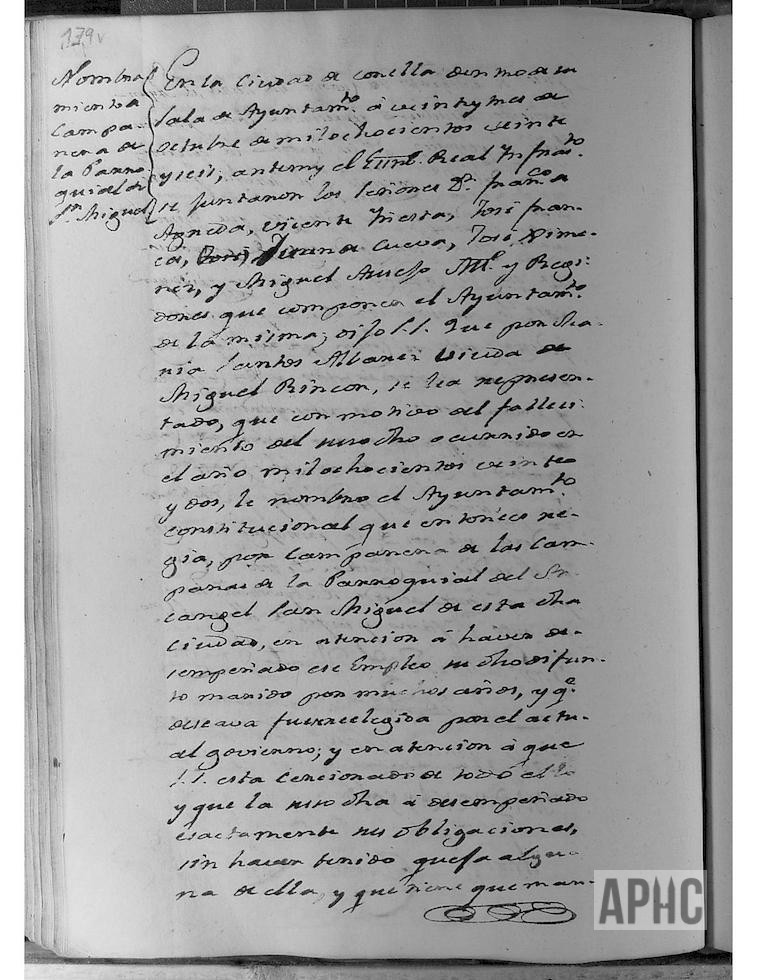 179v
Nombra
miento a
Campa-
nera de
la Parro
quial de
Sn. Miguel
En la Ciudad de Corella dentro de su
sala de Ayuntamto. a veintytres de
octubre de mil ochocientos veinte
y seis, ante my el Real Infrasto.
se juntaron los señores Dn. Franco.
Agreda, Vicente Fran-
ca, de Cueva, José Xime-
nez, y Miguel Alle. y Regi-
dores que componen el Ayuntamto.
de la misma; dijo S.S. Que por Ma-
ria Santos Albarez viuda de
Miguel Rincon, se lea represen-
tado, que con motivo del falleci-
miento del susodho ocurrido en
el año mil ochocientos veinte
y dos, le nombro el Ayuntamto.
constitucional que entonces re-
gia, por Campanera de las Cam-
panas de la Parroquial del Ar
cangel San Miguel de esta dha
Ciudad, en atencion á haver de-
sempeñado ese Empleo su dho difun-
to marido por muchos años, y qe.
deseava fuerreelegida por el actu-
al govierno; y en atencion á que
S.S. esta Cercionado de todo ello
y que la susodha á desempeñado
esactamente sus obligaciones,
sin haver tenido quefa algu
na de ella, y que tiene que man-
APHC